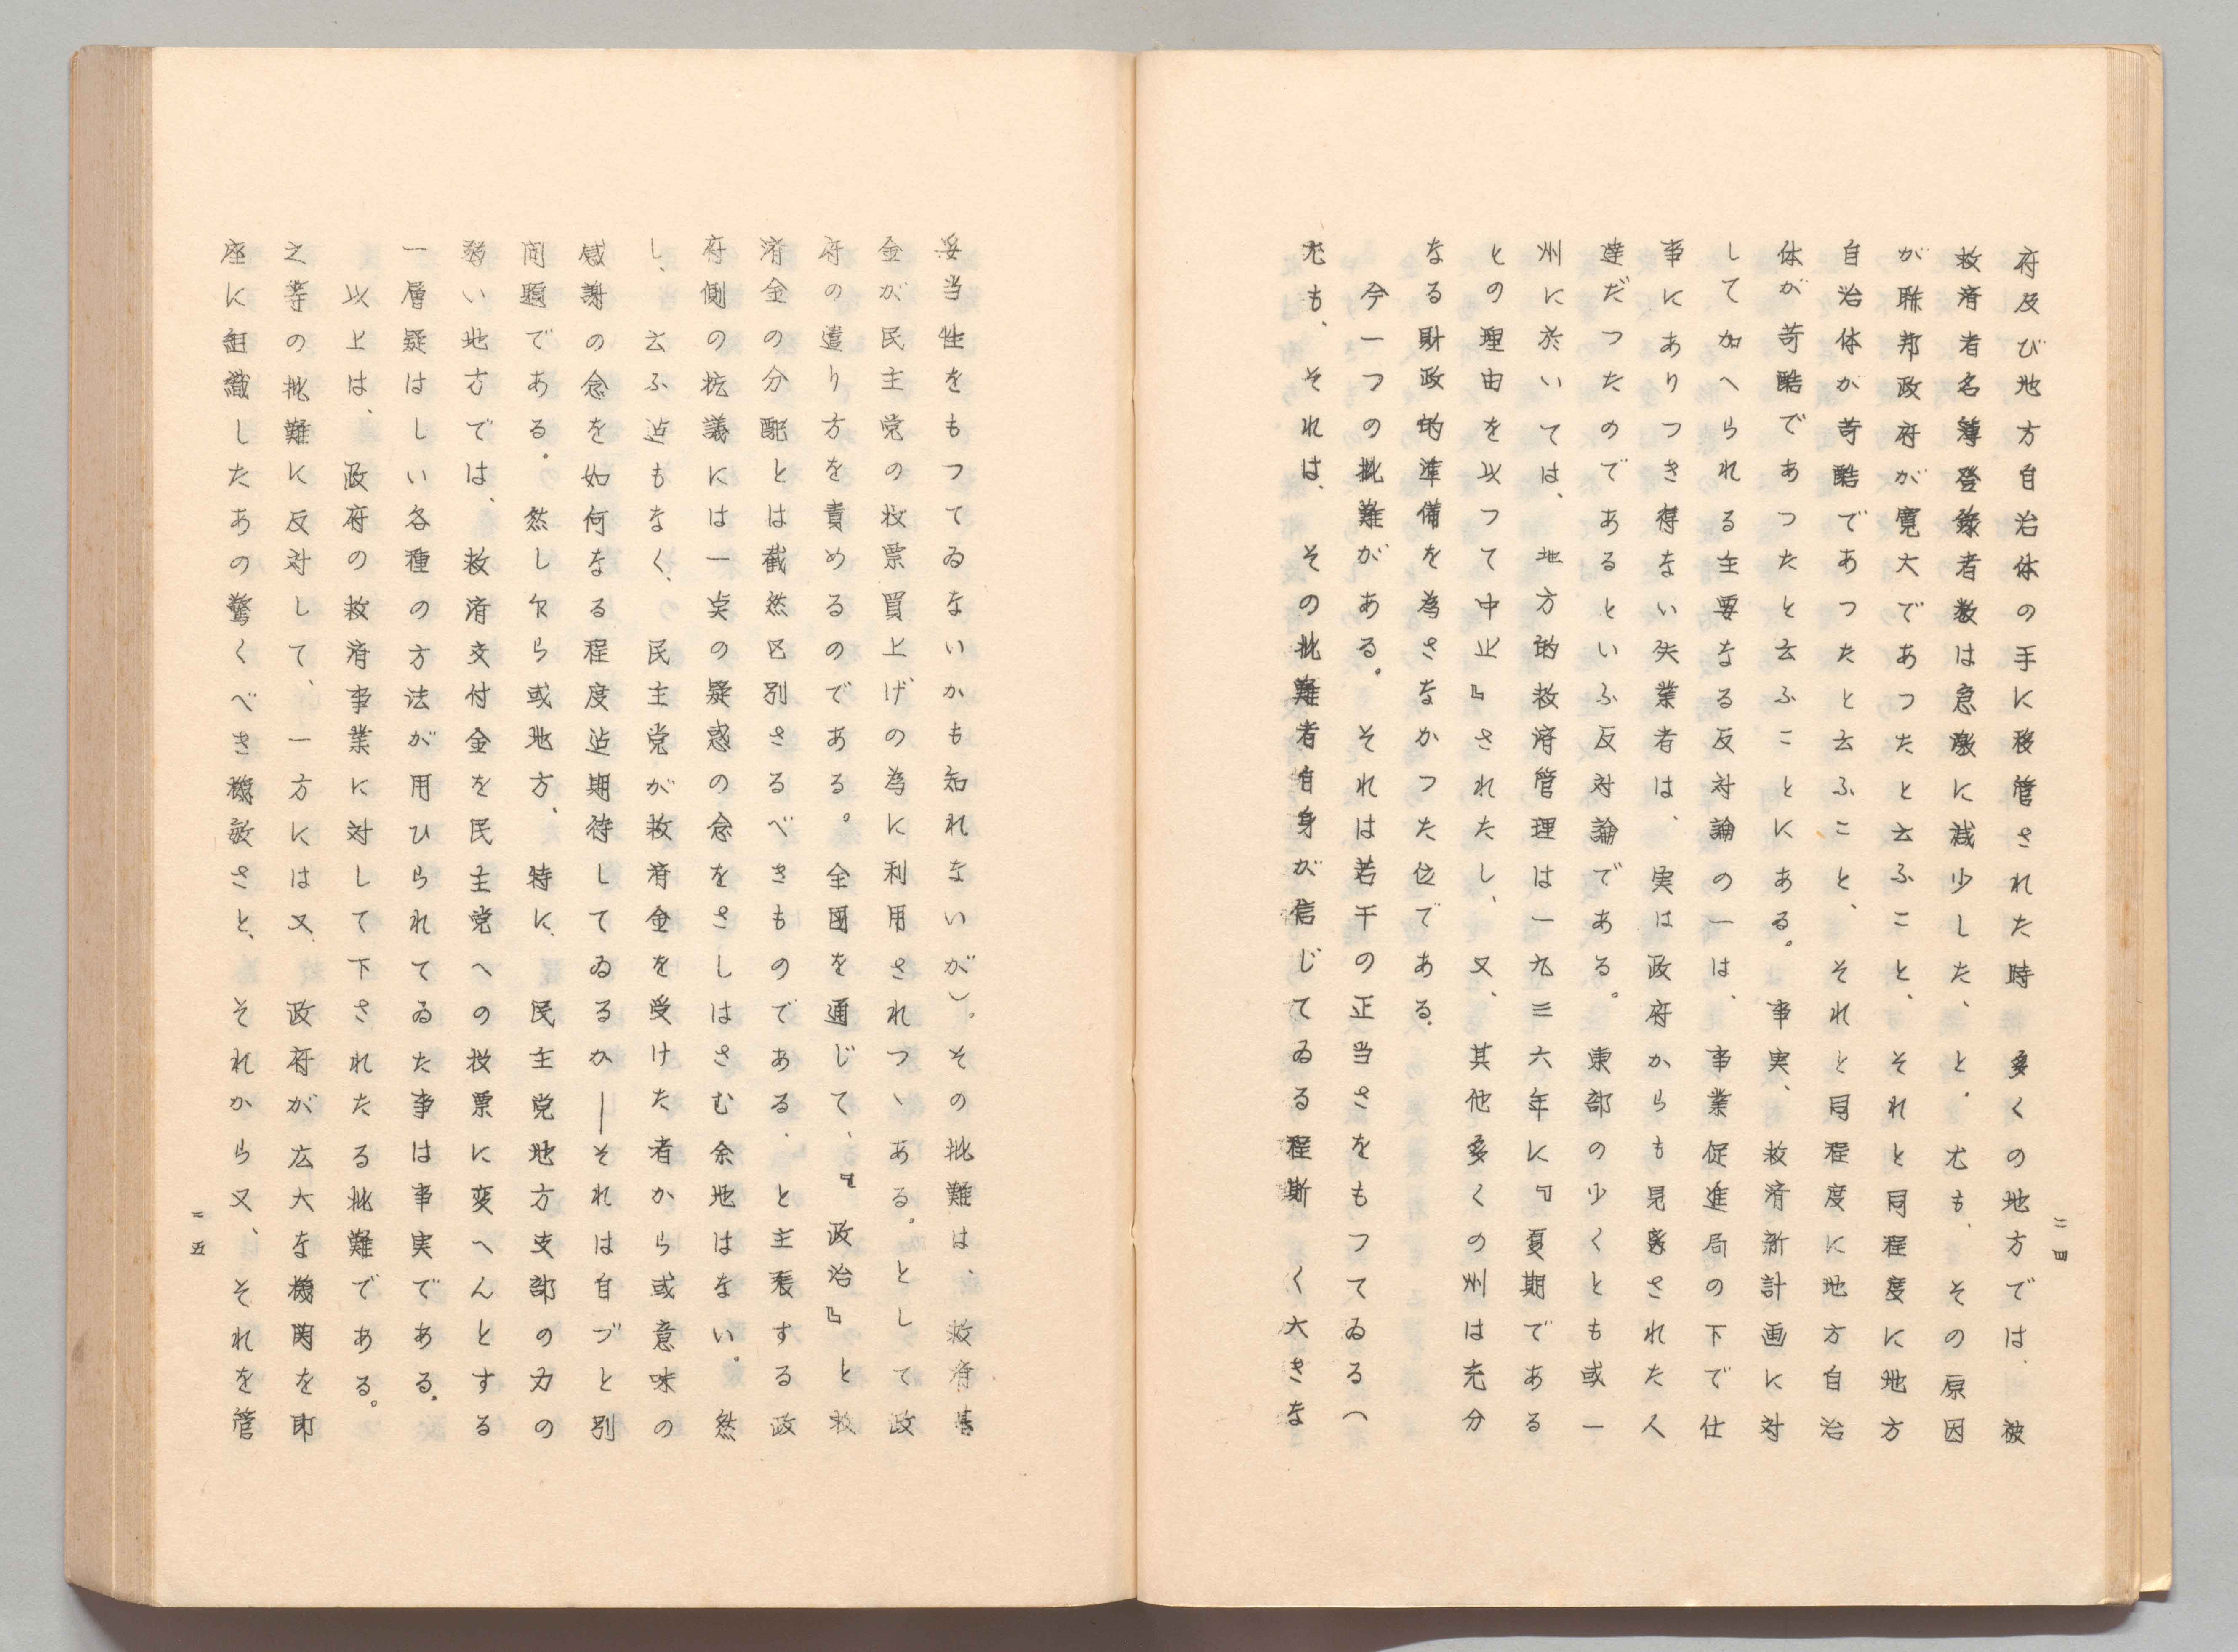 二四
府及び地方自治体の手に移管された時　多くの地方では、被
救済者名簿登録者数は急激に減少した、と。尤も、その原因
が聯邦政府が寛大であつたと云ふこと、それと同程度に地方
自治体が苛酷であつたと云ふこと、それと同程度に地方自治
体が苛酷であつたと云ふことにある。事実、救済新計画に対
して加へられる主要なる反対論の一は、事業促進局の下で仕
事にありつき得ない失業者は、実は政府からも見棄された人
達だつたのであるといふ反対論である。東部の少くとも或一
州に於いては、地方的救済管理は一九三六年に『夏期である
との理由を以つて中止』されたし、又、其他多くの州は充分
なる財政的準備を為さなかつた位である。
今一つの批難がある。それは若干の正当さをもつてゐる（
尤も、それは、その批難者自身が信じてゐる程斯く大きな
妥当性をもつてゐないかも知れないが）。その批難は、救済基
金が民主党の投票買上げの為に利用されつゝある。として政
府の遣り方を責めるのである。全国を通じて、『政治』と救
済金の分配とは截然区別さるべきものである。と主張する政
府側の抗議には一点の疑惑の念をさしはさむ余地はない。然
し、云ふ迄もなく、民主党が救済金を受けた者から或意味の
感謝の念を如何なる程度迄期待してゐるか―それは自づと別
問題である。然し乍ら或地方、特に、民主党地方支部の力の
弱い地方では、救済交付金を民主党への投票に変へんとする
一層疑はしい各種の方法が用ひられてゐた事は事実である。
以上は、政府の救済事業に対して下されたる批難である。
之等の批難に反対して、一方には又、政府が広大な機関を即
座に組織したあの驚くべき機敏さと、それから又、それを管
二五